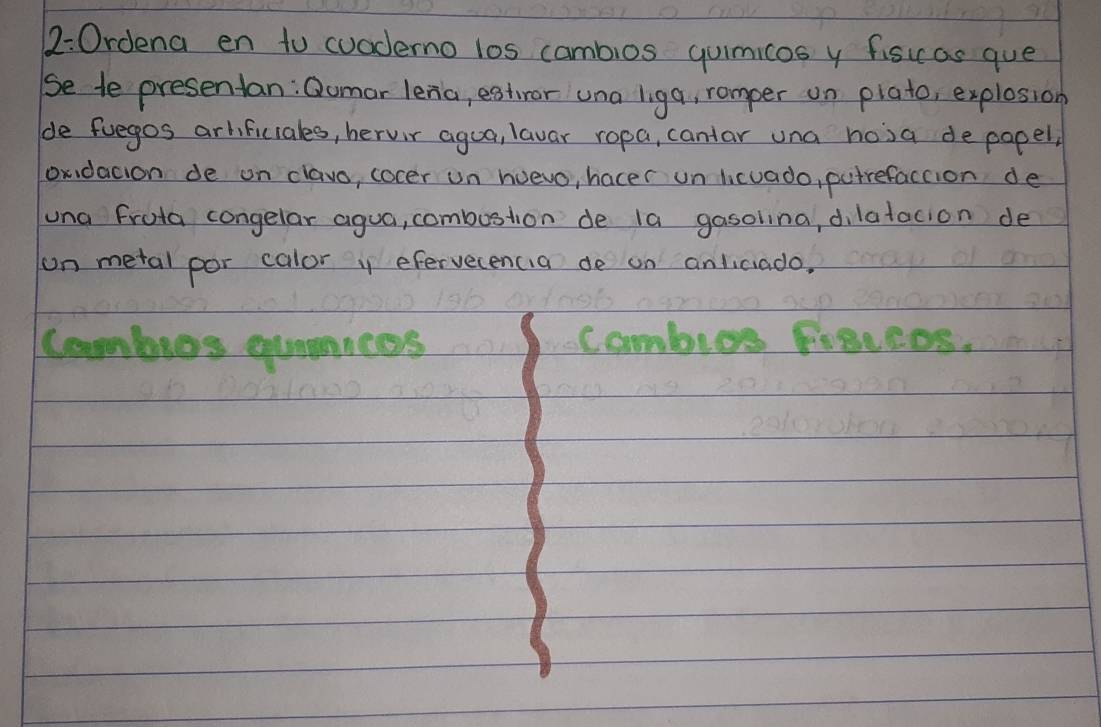 2-Ordena en tu cuaderno los cambios quimicos y fisicos que
se te presentan: Qumar leña, estirar una liga, romper un plato, explosion
de fuegos artificiales, hervir agua, lavar ropa, cantar una hoja de papel,
oxidacion de un clavo, cocer un huevo, hacer un licuado, putrefaccion de
una fruta congelar agua, combustion de la gasolina, dilatacion de
un metal por calor y efervecencia de un anliciado.
Cambios quimicos
Cambios Fisicos.